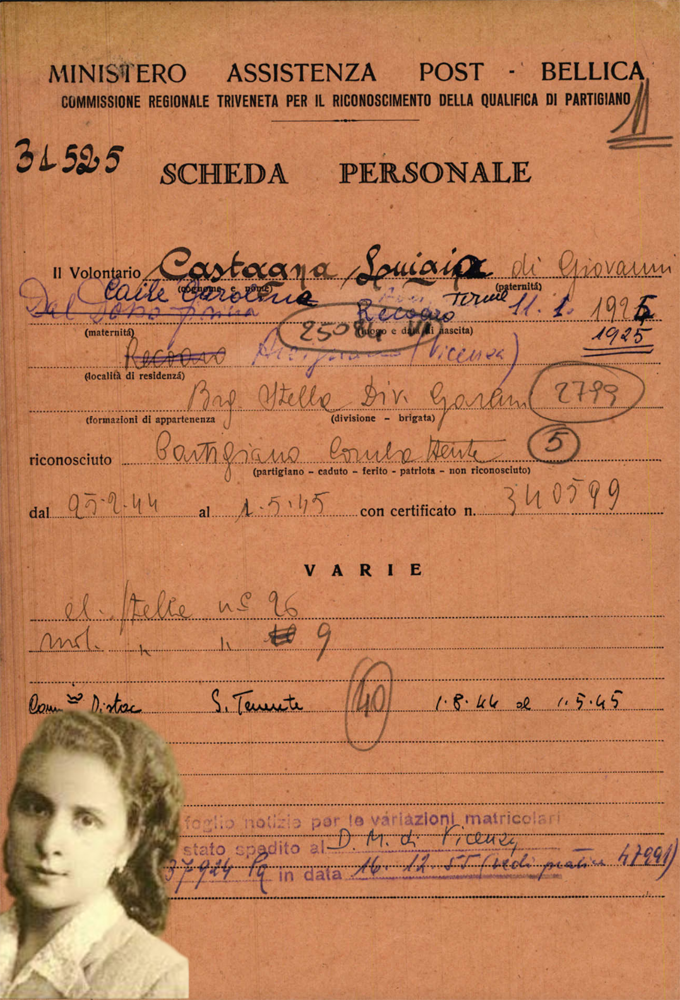 MINISTERO ASSISTENZA POST - BELLICA
COMMISSIONE REGIONALE TRIVENETA PER IL RICONOSCIMENTO DELLA QUALIFICA DI PARTIGIANO
11
31525
SCHEDA PERSONALE
Il Volontario Castagna Luigia di Giovanni
(cognome e nome) (paternità)
Dal Caile Carolina Recoaro Terme 11.1.1925
(maternità) 25084 (luogo e data di nascita) 1925
Recoaro Arzignano (Vicenza)
(località di residenza)
Brg. Stella Div. Garem 2799
(formazioni di appartenenza (divisione - brigata)
riconosciuto Partigiano Combattente 5
(partigiano - caduto - ferito - patriota - non riconosciuto)
dal 25-2-44 al 1-5-45 con certificato n. 340599
VARIE
el. Stelle n° 26
mod. " " 9
Com. Distac S. Tenente 40 1.8.44 al 1.5.45
foglio notizie per le variazioni matricolari
stato spedito al D. M. di Vicenza
37924 Pq in data 16.12.55 (vedi pratica 47991)